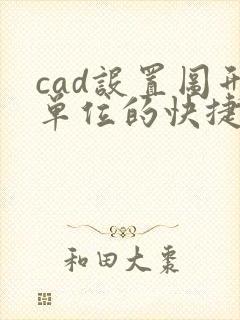 cad設置图形
單位的快捷
和田大棗